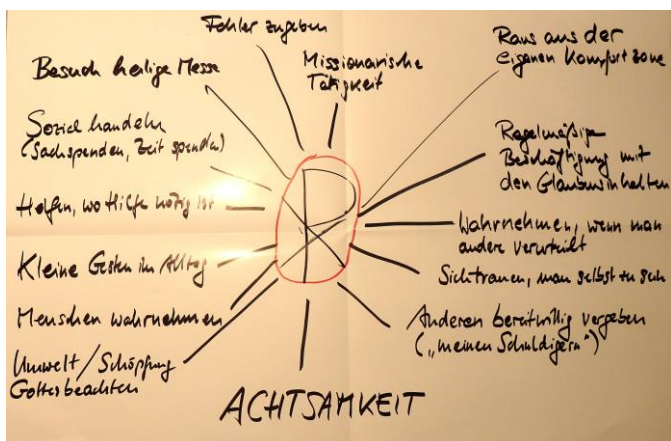 Fehler zugeben
Missionarische
Tätigkeit
Raus aus der
eigenen Komfortzone
Besuch heilige Messe
Sozial handeln
(Sachspenden, Zeit spenden)
Regelmäßige
Beschäftigung mit
den Glaubensinhalten
Helfen, wo Hilfe nötig ist
Wahrnehmen, wenn man
andere verurteilt
Kleine Gesten im Alltag
Sich trauen, man selbst zu sein
Menschen wahrnehmen
Anderen bereitwillig vergeben
("meinen Schuldigern")
Umwelt / Schöpfung
Gottes beachten
ACHTSAMKEIT